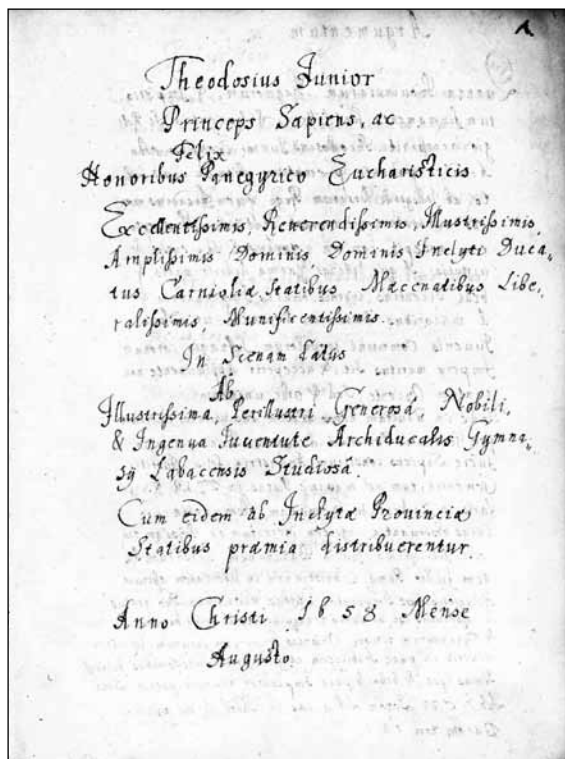 1
Theodosius Junior
Princeps Sapiens, ac
Felix
Honoribus Panegyrico Eucharisticis
Excellentissimis, Reverendissimis, Illustrissimis,
Amplissimis Dominis, Dominis Inclyti Duca,
tus Carnioliæ Statibus, Mæcenatibus Libe,
ralissimis Munificentissimis.
In Scenam datus
Ab
Illustrissima, Perillustri Generosâ, Nobili,
& Ingenua Iuventute Archiducalis Gymna,
sÿ Labacensis Studiosâ.
Cum eidem ab Inclytæ Provinciæ
Statibus præmia distribuerentur.
Anno Christi 1658 Mense
Augusto.